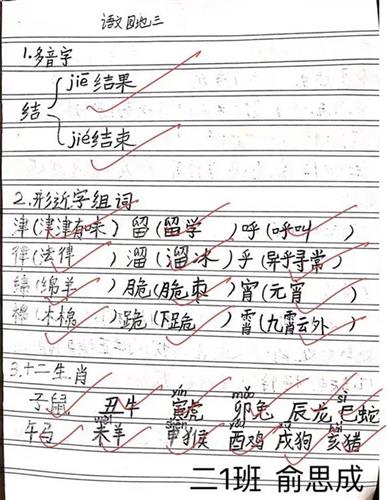 语文园地三
1.多音字
结
jiē结果
jié结束
2.形近字组词
津(津津有味) 留(留学 ) 呼(呼叫 )
律(法律 ) 溜(溜冰 ) 乎(异乎寻常 )
绵(绵羊 ) 脆(脆枣 ) 宵(元宵 )
棉(木棉 ) 跪(下跪 ) 霄(九霄云外 )
3.十二生肖
yín mǎo sì
子鼠 丑牛 寅虎 卯兔 辰龙 巳蛇
wèi shēn yǒu xū hài
午马 未羊 申猴 酉鸡 戌狗 亥猪
二1班 俞思成